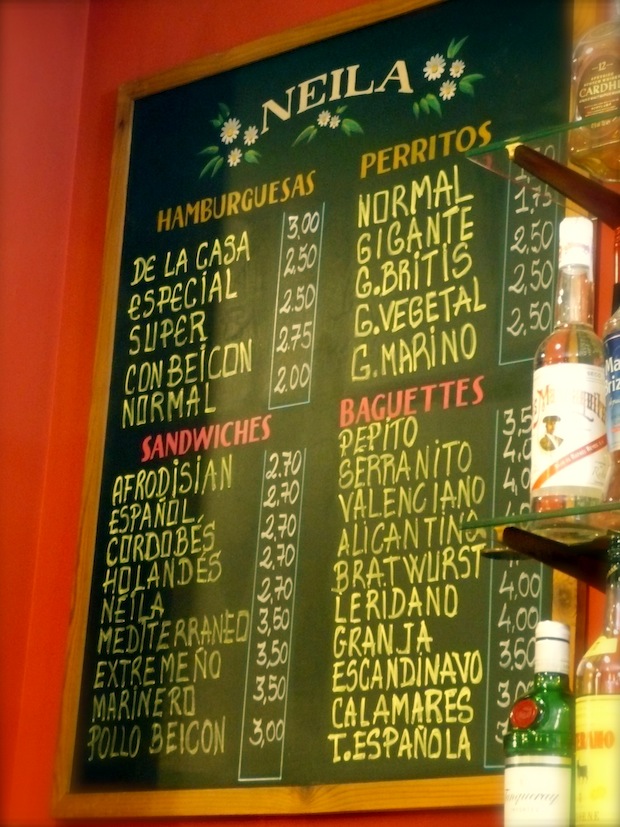 NEILA
HAMBURGUESAS
DE LA CASA 3,00
ESPECIAL 2,50
SUPER 2.50
CON BEICON 2.75
NORMAL 2.00
SANDWICHES
AFRODISIAN 2.70
ESPAÑOL 2,70
CORDOBÉS 2.70
HOLANDÉS 2.70
NEILA 2.70
MEDITERRANEO 3,50
EXTREMEÑO 3,50
MARINERO 3,50
POLLO BEICON 3,00
PERRITOS
NORMAL
GIGANTE 1,75
G.BRITIS 2,50
G.VEGETAL 2,50
G.MARINO 2.50
BAGUETTES
PEPITO
SERRANITO
VALENCIANO
ALICANTINO
BRATWURST
LERIDANO 4.00
GRANJA 4,00
ESCANDINAVO 3.50
CALAMARES
T.ESPAÑOLA
12
Tanqueray